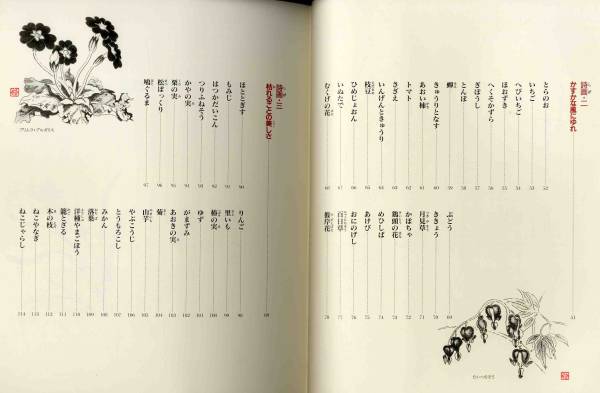 詩画・二
かすかな風にゆれ 51
とらのお 52
いちご 53
へびいちご 54
ほおずき 55
へくそかずら 56
ぎぼうし 57
とんぼ 58
蝉 59
きゅうりとなす 60
あおい柿 61
トマト 62
さざえ 63
いんげんときゅうり 64
枝豆 65
ひめじょおん 66
いぬたで 67
むくげの花 68
ぶどう 69
ききょう 70
月見草 71
かぼちゃ 72
鶏頭の花 73
めひしば 74
あけび 75
おにのげし 76
百日草 77
彼岸花 78
詩画・三
枯れることの美しさ 89
ほととぎす 90
もみじ 91
はつかだいこん 92
つりふねそう 93
かやの実 94
栗の実 95
松ぼっくり 96
鳩ぐるま 97
りんご 98
里いも 99
椿の実 100
ゆず 101
がまずみ 102
あおきの実 103
菊 104
山芋 105
やぶこうじ 106
とうもろこし 107
みかん 108
落葉 109
洋種やまごぼう 110
籠とざる 111
木の枝 112
ねこやなぎ 113
ねこじゃらし 114